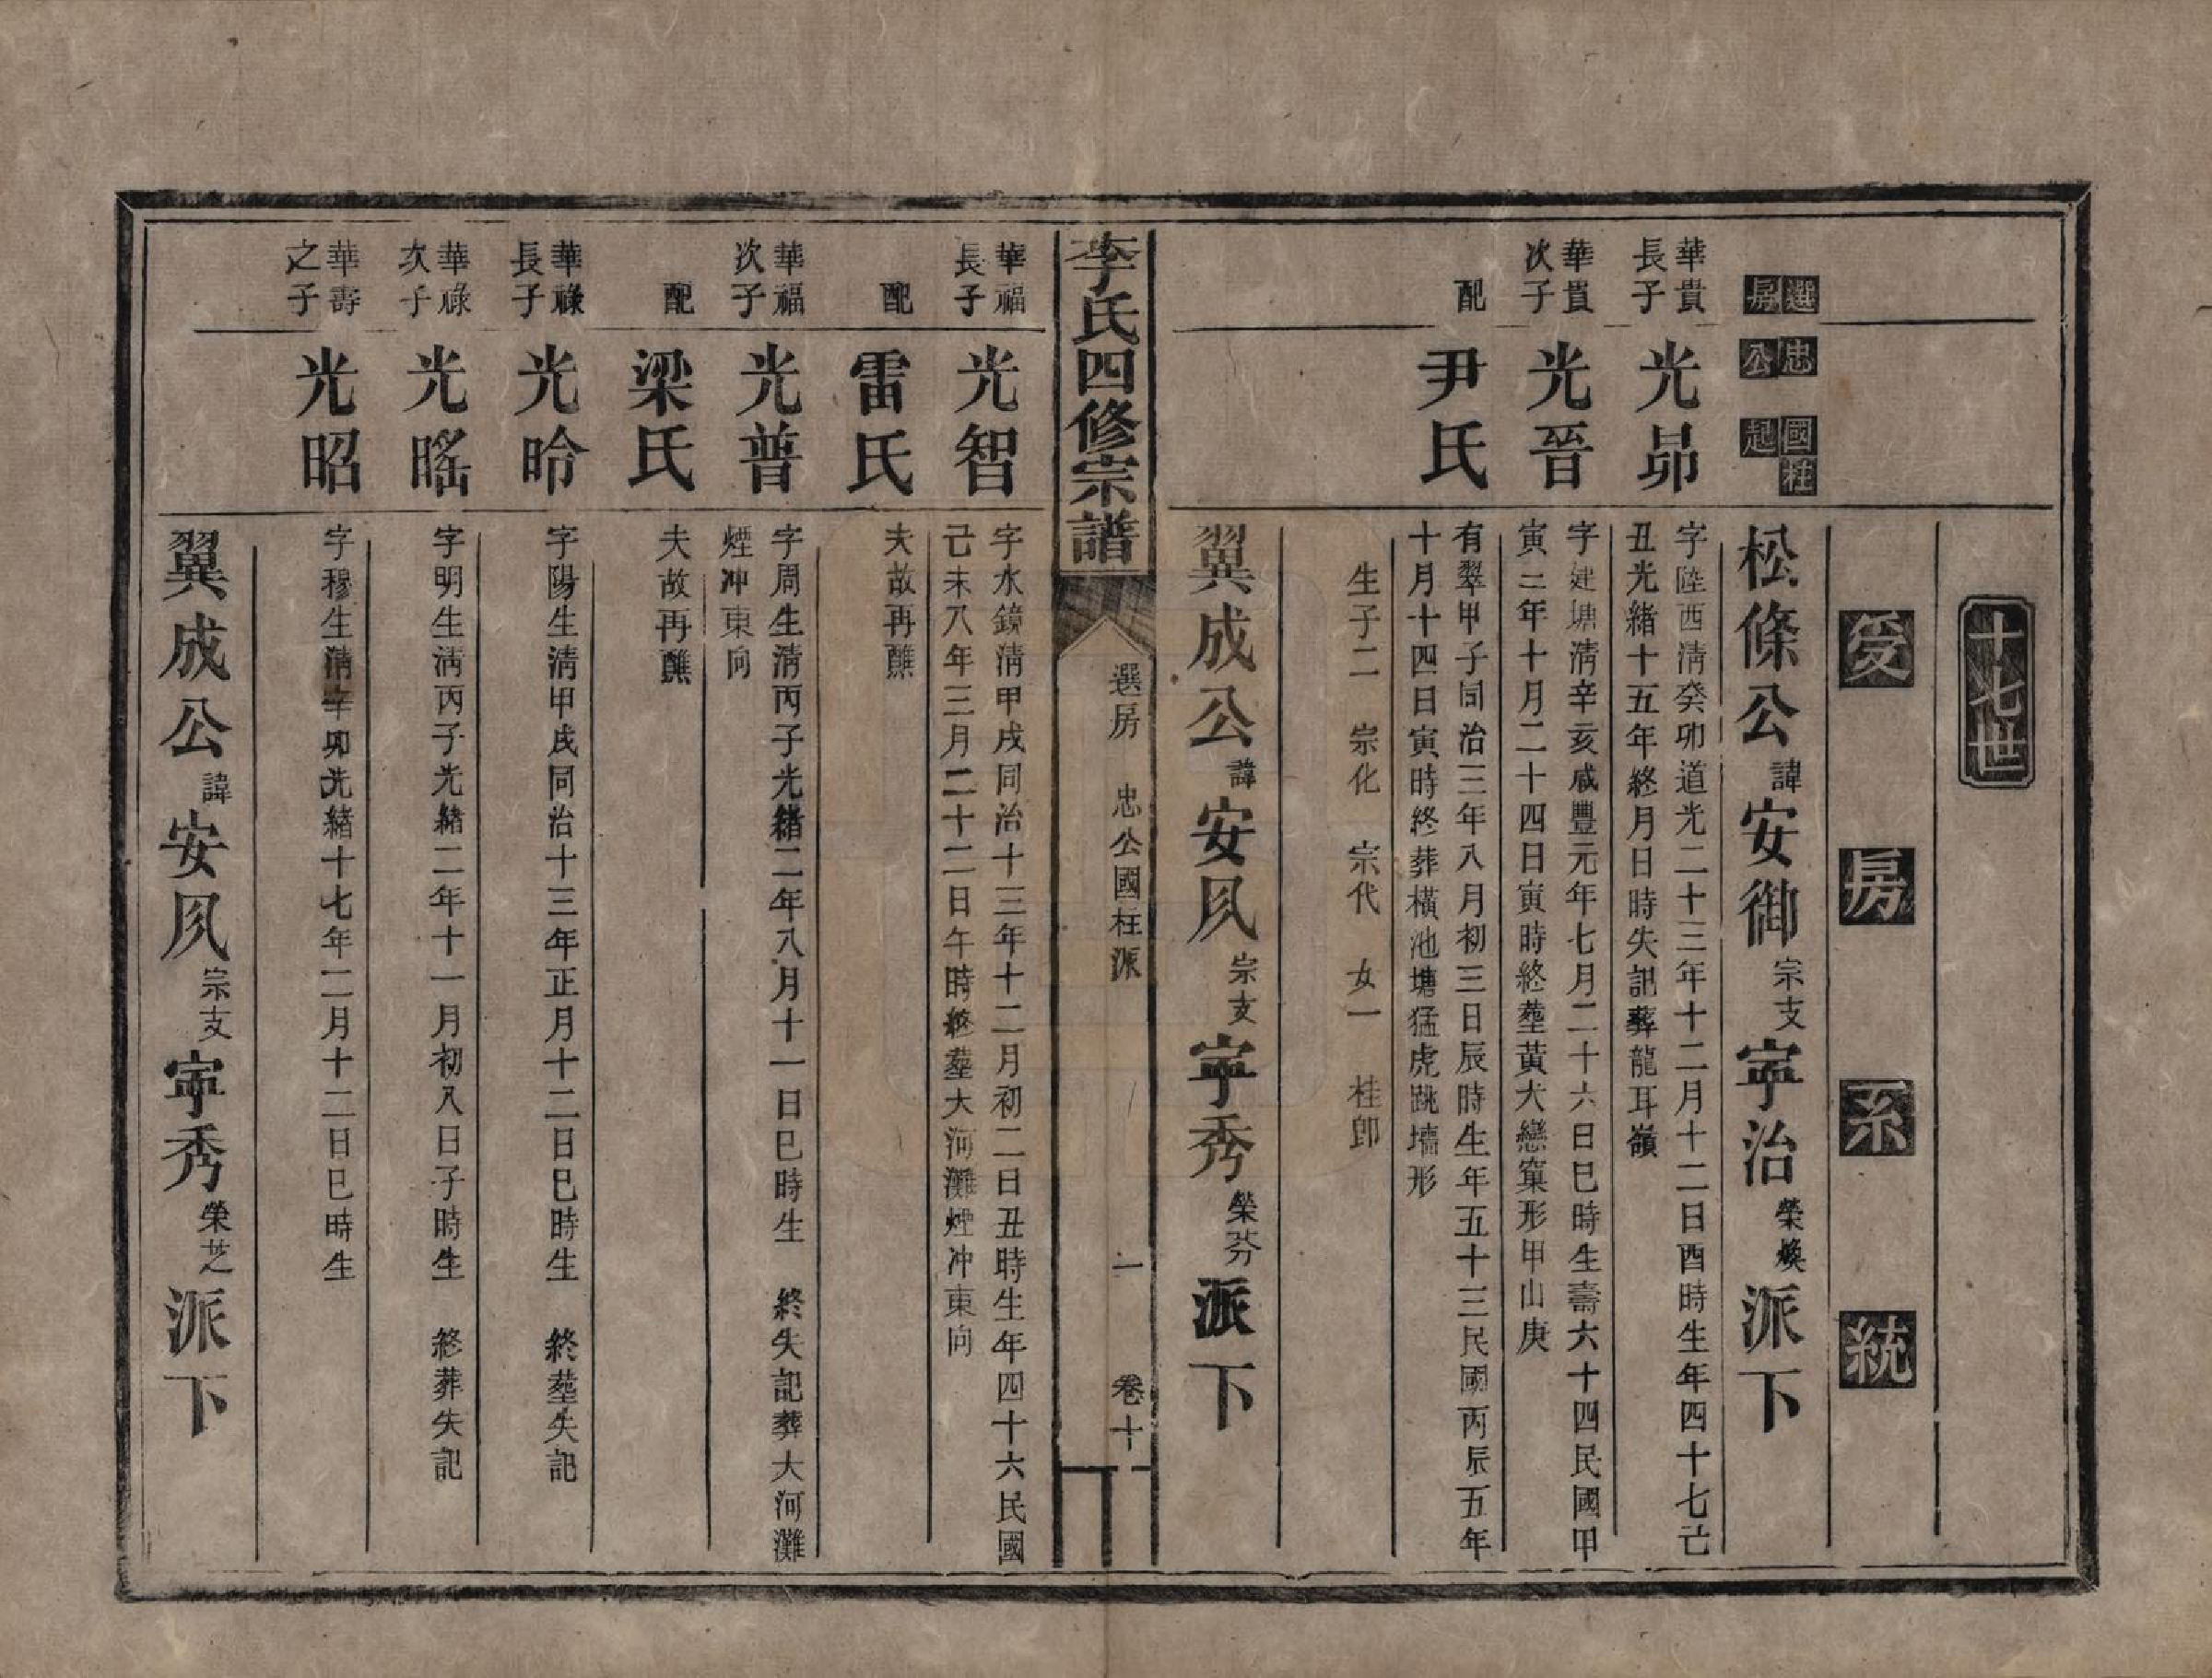 十七世
爰房系統
選房 忠公 國柱起
松條公諱安御宗支寧治榮煥派下
華貴長子
光昴
字陸西清癸卯道光二十三年十二月十二日酉時生年四十七亡
丑光緒十五年終月日時失記葬龍耳嶺
華貴次子
光晉
字建塘清辛亥咸豐元年七月二十六日巳時生壽六十四民國甲
寅三年十月二十四日寅時終塟黃犬戀窠形甲山庚
配
尹氏
有翠甲子同治三年八月初三日辰時生年五十三民國丙辰五年
十月十四日寅時終葬橫池塘猛虎跳墻形
生子二 宗化 宗代 女一 桂郎
翼成公諱安夙宗支寧秀榮芬派下
李氏四修宗譜
選房 忠公國柱派
一
卷十
華福長子
光智
字水鏡清甲戌同治十三年十二月初二日丑時生年四十六民國
己未八年三月二十二日午時終塟大河灘煙冲東向
配
雷氏
夫故再醮
華福次子
光普
字周生清丙子光緒二年八月十一日巳時生 終失記葬大河灘
煙冲東向
配
梁氏
夫故再醮
華祿長子
光昑
字陽生清甲戌同治十三年正月十二日巳時生 終塟失記
華祿次子
光暚
字明生清丙子光緒二年十一月初八日子時生 終葬失記
華壽之子
光昭
字穆生清辛卯光緒十七年二月十二日巳時生
翼成公諱安夙宗支寧秀榮芝派下